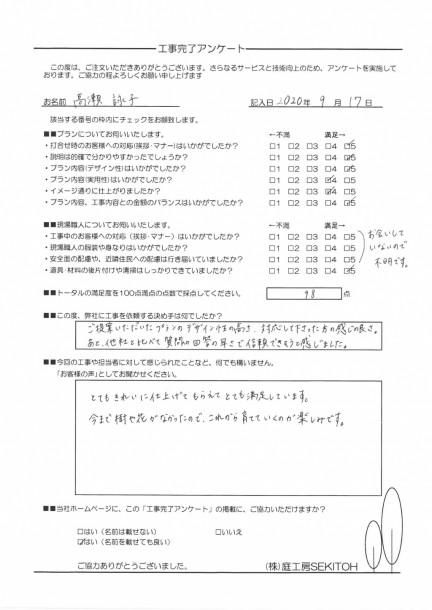 工事完了アンケート
この度は、ご注文いただきありがとうございます。さらなるサービスと技術向上のため、アンケートを実施して
おります。ご協力の程よろしくお願い申し上げます
お名前 高瀬 詠子 記入日 2020年 9月 17日
該当する番号の枠内にチェックをお願致します。
■■プランについてお伺いいたします。 ←不満 満足→
・打合せ時のお客様への対応(挨拶・マナー)はいかがでしたか? □1 □2 □3 □4 ☑5
・説明は的確で分かりやすかったでしょうか? □1 □2 □3 □4 ☑5
・プラン内容(デザイン性)はいかがでしたか? □1 □2 □3 □4 ☑5
・プラン内容(実用性)はいかがでしたか? □1 □2 □3 ☑4 □5
・イメージ通りに仕上がりましたか? □1 □2 □3 ☑4 □5
・プラン内容、工事内容との金額のバランスはいかがでしたか? □1 □2 □3 □4 ☑5
■■現場職人についてお伺いいたします。 ←不満 満足→
・工事中のお客様への対応(挨拶・マナー)はいかがでしたか? □1 □2 □3 □4 □5
・現場職人の服装や身なりはいかがでしたか? □1 □2 □3 □4 □5
・安全面の配慮や、近隣住民への配慮は行き届いていましたか? □1 □2 □3 □4 □5
・道具・材料の後片付けや清掃はしっかりできていましたか? □1 □2 □3 □4 ☑5
お会いして
いないので
不明です。
■■トータルの満足度を100点満点の点数で採点してください。 98 点
■■この度、弊社に工事を依頼する決め手は何でしたか?
ご提案いただいたプランのデザイン性の高さ、対応して下さった方の感じの良さ。
あと、他社と比べて質問の回答の早さで信頼できそうと感じました。
■■今回の工事や担当者に対して感じられたことなど、何でも構いません。
「お客様の声」としてお聞かせください。
とてもきれいに仕上げてもらえてとても満足しています。
今まで樹や花がなかったので、これから育てていくのが楽しみです。
■■当社ホームページに、この「工事完了アンケート」の掲載に、ご協力いただけますか?
□はい(名前は載せない) □いいえ
☑はい(名前を載せても良い)
ご協力ありがとうございました。 (株)庭工房SEKITOH